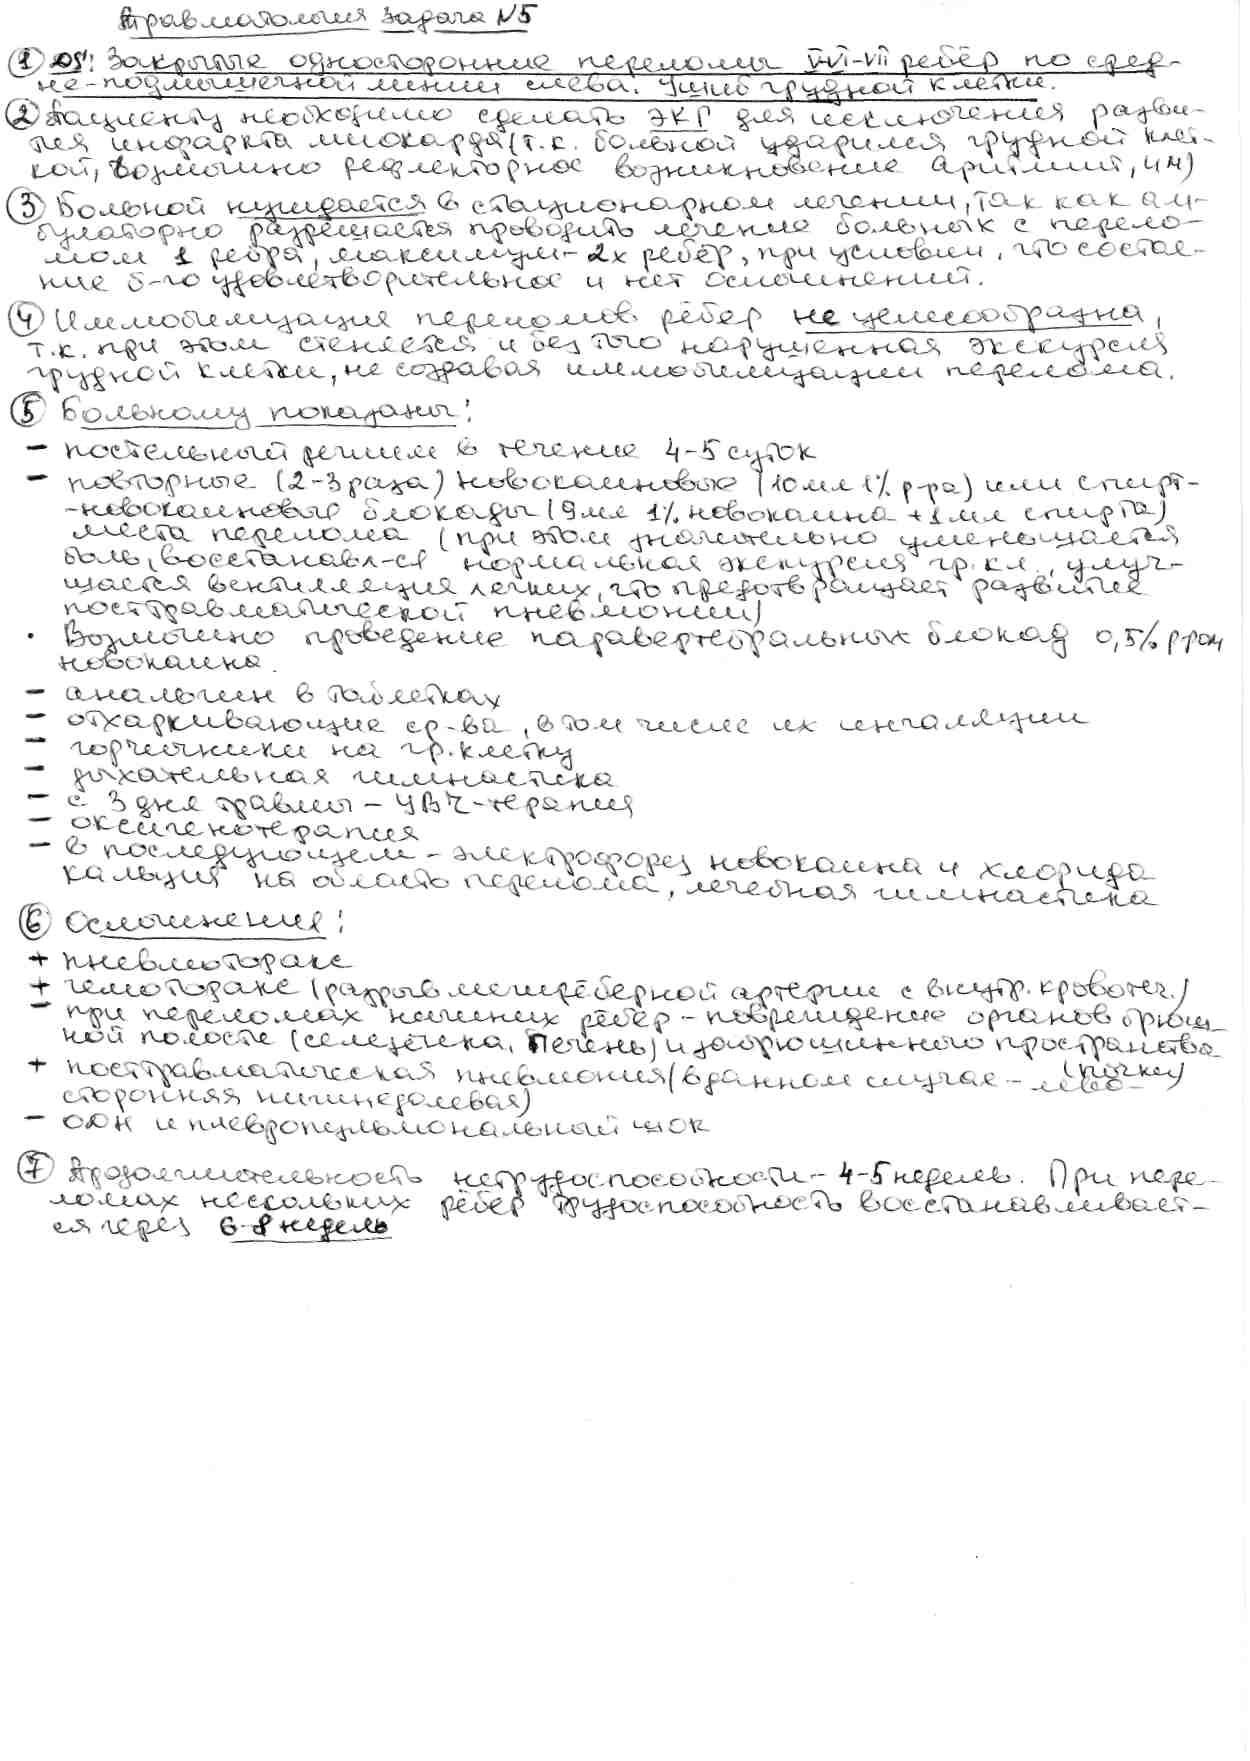 Травматология задача №5
① DS: Закрытые односторонние переломы V-VI-VII рёбер по сред-
не-подмышечной линии слева. Ушиб грудной клетки.
② Пациенту необходимо сделать ЭКГ для исключения разви-
тия инфаркта миокарда (т.к. больной ударился грудной клет-
кой, возможно рефлекторное возникновение аритмий, ИМ)
③ Больной нуждается в стационарном лечении, так как ам-
булаторно разрешается проводить лечение больных с перело-
мом 1 ребра, максимум - 2х рёбер, при условии, что состоя-
ние б-го удовлетворительное и нет осложнений.
④ Иммобилизация переломов рёбер не целесообразна,
т.к. при этом стеняется и без того нарушенная экскурсия
грудной клетки, не создавая иммобилизации перелома.
⑤ Больному показаны:
- постельный режим в течение 4-5 суток
- повторные (2-3 раза) новокаиновые (10 мл 1% р-ра) или спирт-
-новокаиновые блокады (9 мл 1% новокаина + 1 мл спирта)
места перелома (при этом значительно уменьшается
боль, восстанавл-ся нормальная экскурсия гр.кл., улуч-
шается вентиляция легких, что предотвращает развитие
посттравматической пневмонии)
· Возможно проведение паравертебральных блокад 0,5% р-ром
новокаина.
- анальгин в таблетках
- отхаркивающие ср-ва, в том числе их ингаляции
- горчичники на гр. клетку
- дыхательная гимнастика
- с 3 дня травмы - УВЧ-терапия
- оксигенотерапия
- в последующем - электрофорез новокаина и хлорида
кальция на область перелома, лечебная гимнастика
⑥ Осложнения:
+ пневмоторакс
+ гемоторакс (разрыв межрёберной артерии с внутр. кровотеч.)
- при переломах нижних рёбер - повреждение органов брюш-
ной полости (селезёнка, печень) и забрюшинного пространства
(почки)
+ посттравматическая пневмония (в данном случае - лево-
сторонняя нижнедолевая)
- ОДН и плевропульмональный шок
⑦ Продолжительность нетрудоспособности - 4-5 недель. При пере-
ломах нескольких рёбер трудоспособность восстанавливает-
ся через 6-8 недель